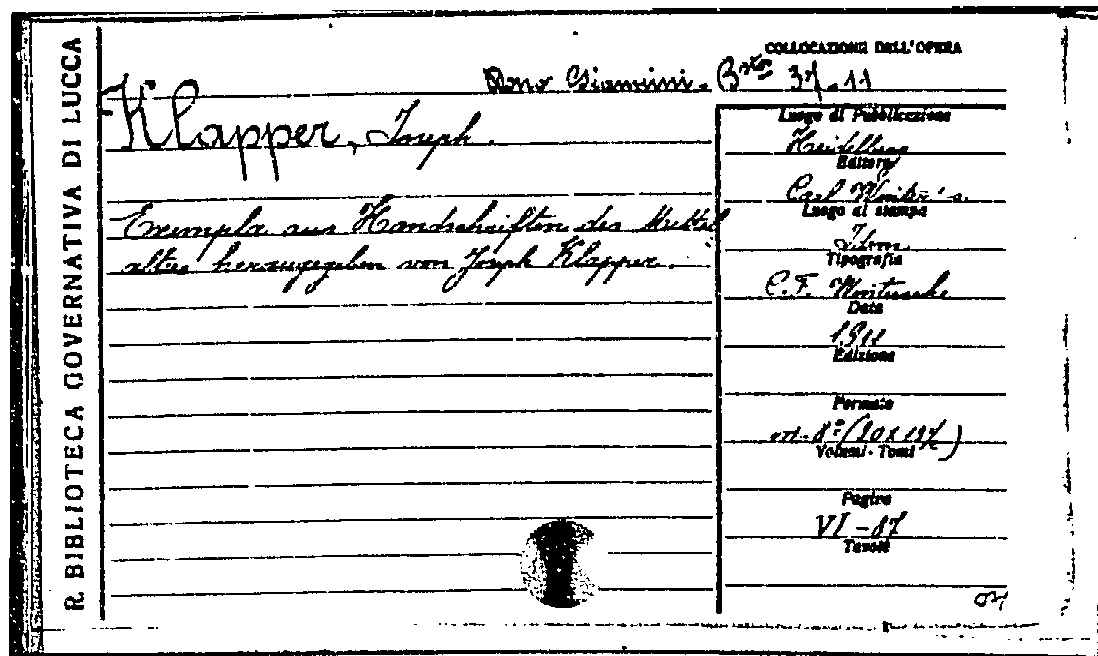 R. BIBLIOTECA GOVERNATIVA DI LUCCA
COLLOCAZIONI DELL'OPERA
Giannini. 37.11
Klapper, Joseph.
Exempla aus Handschriften des Mittel
alters herausgegeben von Joseph Klapper.
Luogo di Pubblicazione
Heidelberg
Editore
Carl Winter's
Luogo di stampa
Idem
Tipografia
C.F.
Data
1911
Edizione
Formato
8°
Volumi - Tomi
Pagine
VI-87
Tavole